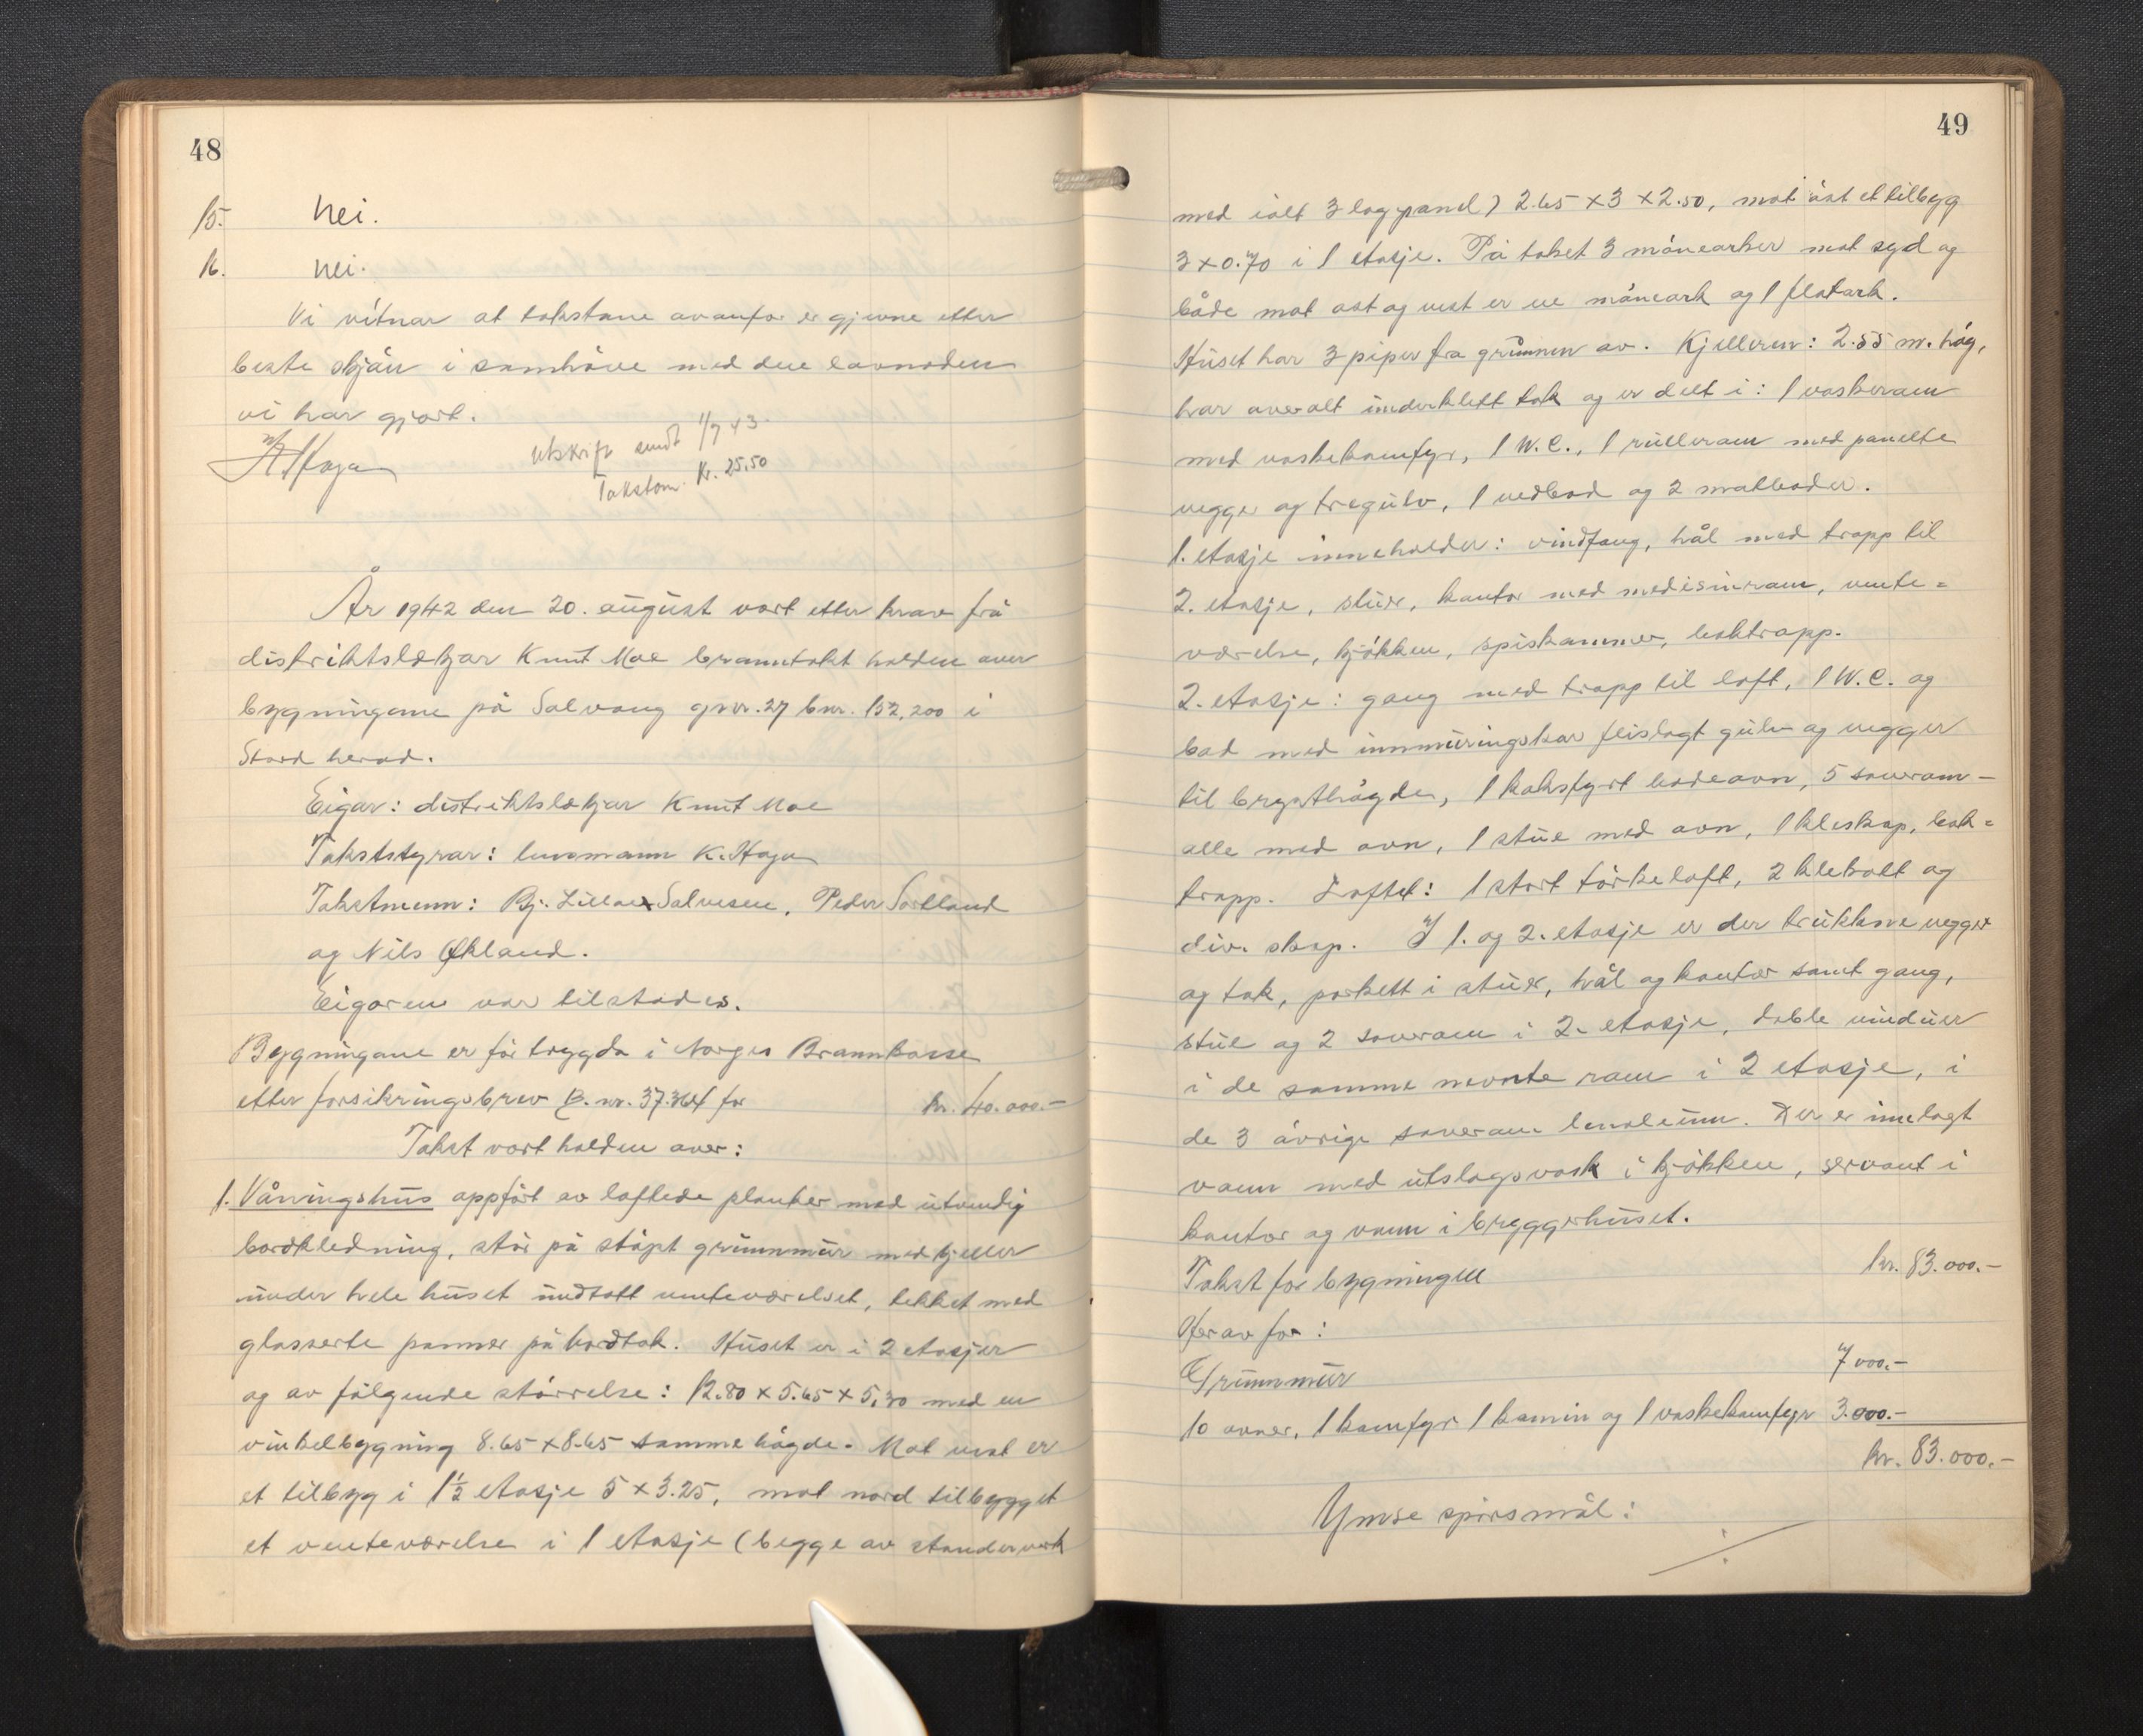 48
15. Nei.
16. Nei.
Vi vitnar at takstane ovanfor er gjevne etter
beste skjön i samhöve med den lovnaden
vi har gjort.
K. Haga
Utskrift sendt 1/9 43.
Takstom. Kr. 25.50
År 1942 den 20. august vart etter krav frå
distriktslækjar Knut Moe branntakst halden over
bygningane på Solvang gnr. 27 bnr. 152, 200 i
Stord herad.
Eigar: distriktslækjar Knut Moe
Takststyrar: lensmann K. Haga
Takstmenn: Bj. Salvesen, Peder Sortland
og Nils Økland.
Eigaren var tilstades.
Bygningane er för trygda i Norges Brannkasse
etter forsikringsbrev B. nr. 37.364 for kr. 40.000.-
Takst vart halden over:
1. Våningshus oppfört av laftede planker med utvendig
bordkledning, står på stöpt grunnmur med kjeller
under hele huset undtatt venteværelset, tekket med
glasserte panner på bordtak. Huset er i 2 etasjer
og av fölgende störrelse: 12.80 x 5.65 x 5.30 med en
vinkelbygning 8.65 x 8.65 samme högde. Mot vest er
et tilbygg i 1½ etasje 5 x 3.25, mot nord tilbygget
et venteværelse i 1 etasje (begge av standerverk
49
med ialt 3 lag panel) 2.65 x 3 x 2.50, mot öst et tilbygg
3 x 0.70 i 1 etasje. På taket 3 månearker mot syd og
både mot ost og vest er en måneark og 1 flatark.
Huset har 3 piper fra grunnen av. Kjelleren: 2.55 m. hög,
har overalt underklett tak og er delt i: 1 vaskerom
med vaskekomfyr, 1 W.C., 1 rullerom med panelte
vegger og tregulv, 1 vedbod og 2 matboder.
1. etasje inneholder: vindfang, hål med trapp til
2. etasje, stuer, kontor med medisinrom, vente=
værelse, kjökken, spiskammer, baktrapp.
2. etasje: gang med trapp til loft, 1 W.C. og
bad med innmuringskar flislagt gulv og vegger
til brysthögde, 1 koksfyrt badeovn, 5 soverom -
alle med ovn, 1 stue med ovn, 1 kleskap, bak=
trapp. Loftet: 1 stort törkeloft, 2 klekott og
div. skap. I 1. og 2. etasje er der trukkne vegger
og tak, parkett i stuer, hål og kontor samt gang,
stue og 2 soverom i 2. etasje, doble vinduer
i de samme nevnte rom i 2 etasje, i
de 3 övrige soverom linoleum. Der er innlagt
vann med utslagsvask i kjökken, servant i
kontor og vann i bryggerhuset.
Takst for bygningen kr. 83.000.-
Herav for:
Grunnmur 7000.-
10 ovner, 1 komfyr 1 kamin og 1 vaskekomfyr 3.000.-
kr. 83.000.-
Ymse spörsmål: